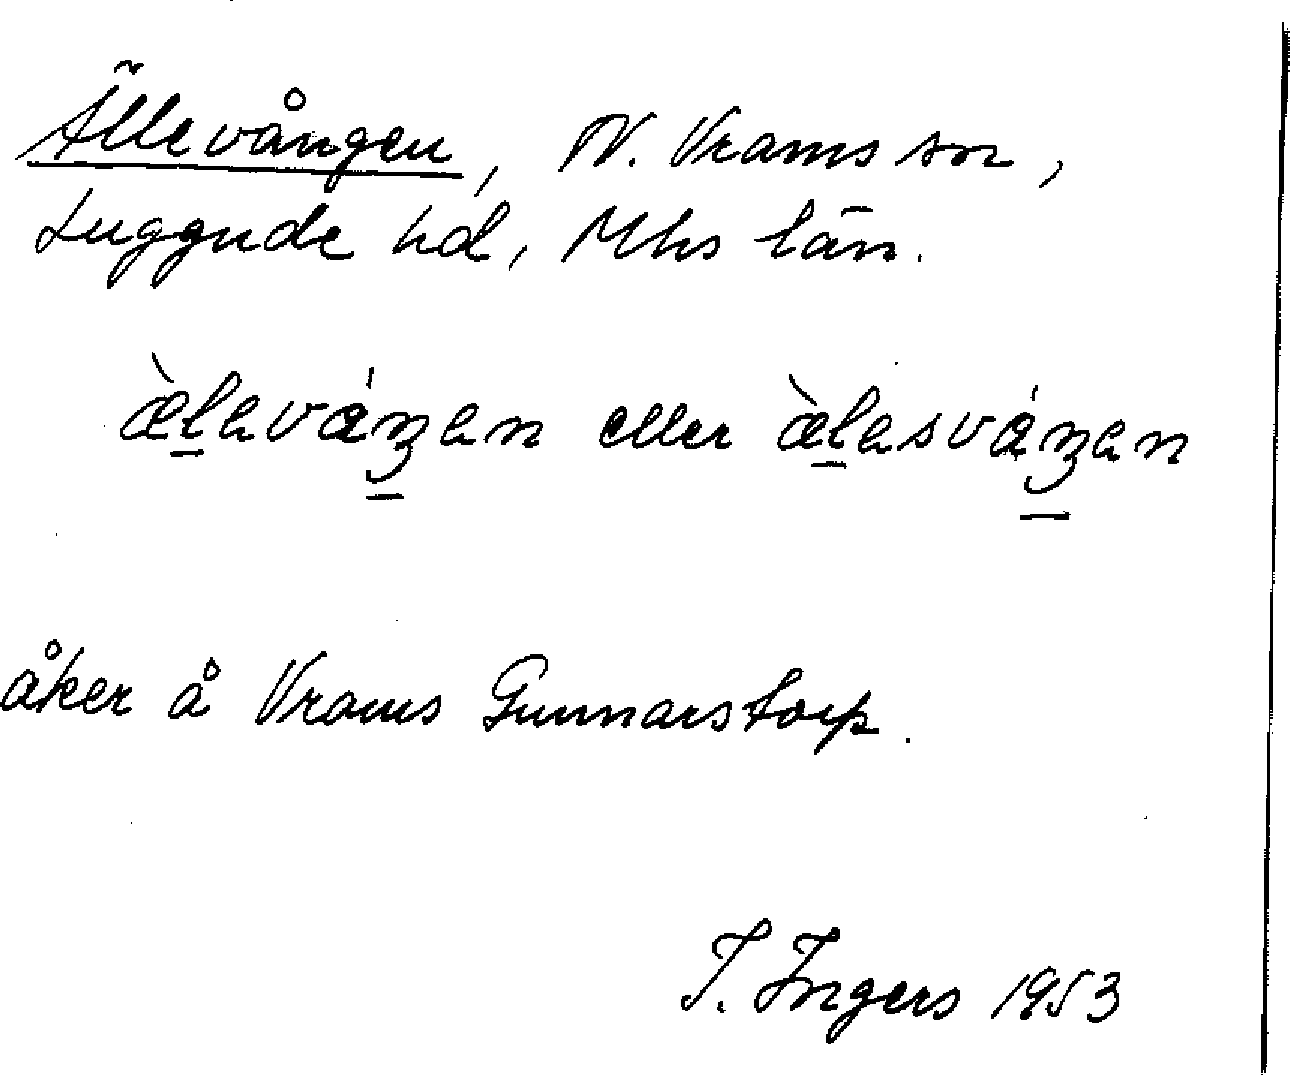 Ällevången, N. Vrams sn,
Luggude hd, Mhs län.
æ̀l̲eváŋ̲en eller æ̀l̲esváŋ̲en
åker å Vrams Gunnarstorp.
I. Ingers 1953